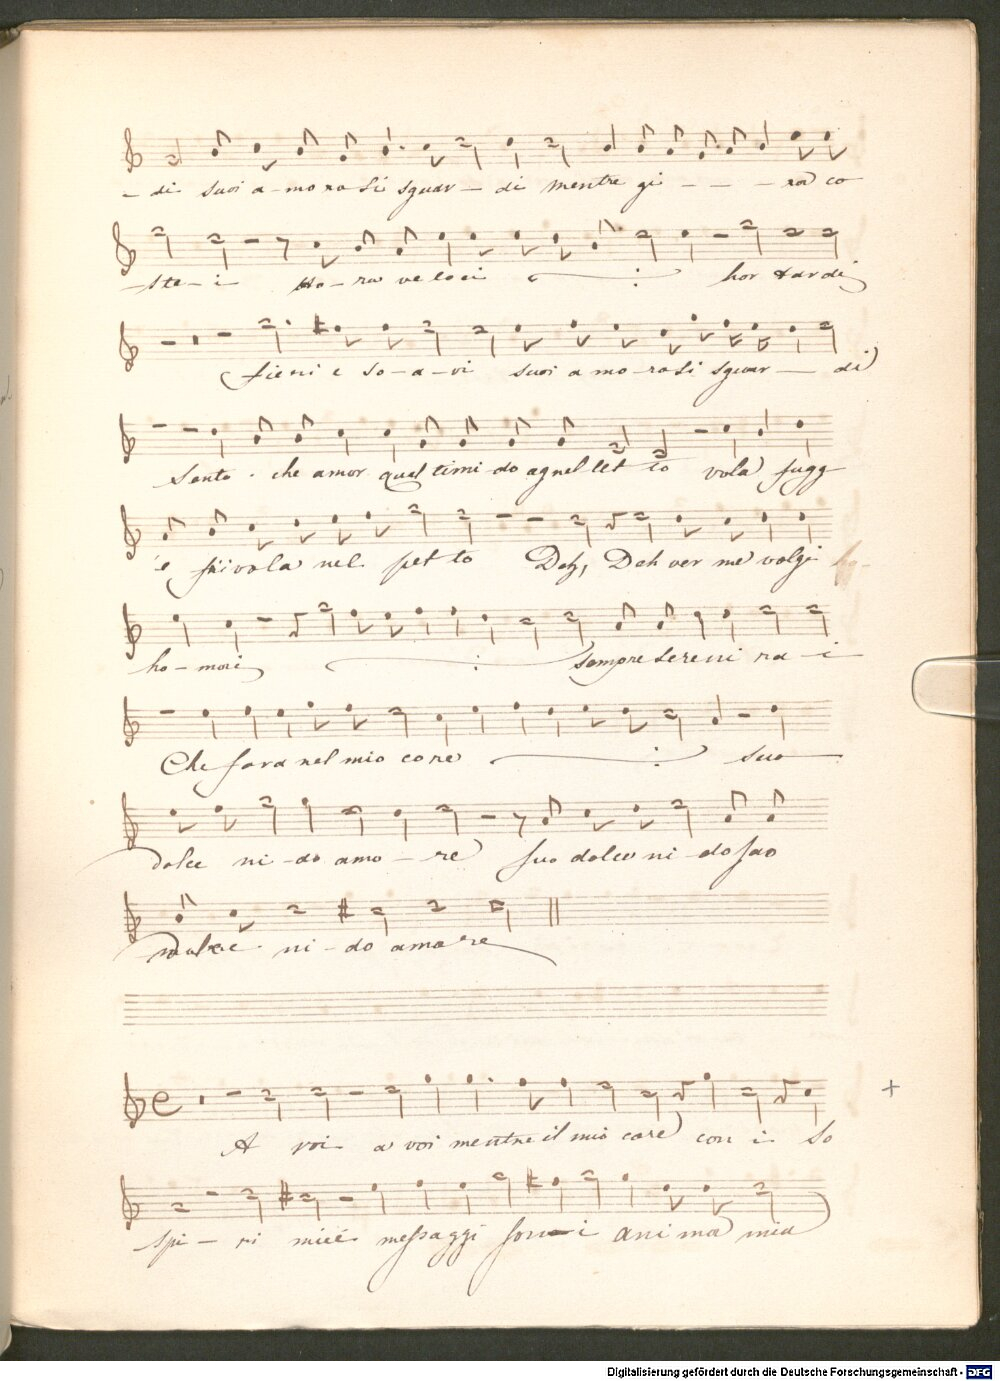 - di suoi a-mo rosi sguar - di mentre gi - - - ra co
- ste - i Ho - ra veloci : hor tardi
sieni e so - a - vi suoi a mo - rosi sguar - di
Sento che amor qual timi do agnel let to vola fugg
e vola nel pet to Deh, Deh ver me volgi
ho - mori : sempre sereni ra - i
Che fara nel mio core : suo
dolce ni - do amo - re suo dolce ni - do suo
dolce ni - do amore
A voi a voi mentre il mio core con i So
spi - ri miei messaggi anima mia
+
Digitalisierung gefördert durch die Deutsche Forschungsgemeinschaft - DFG